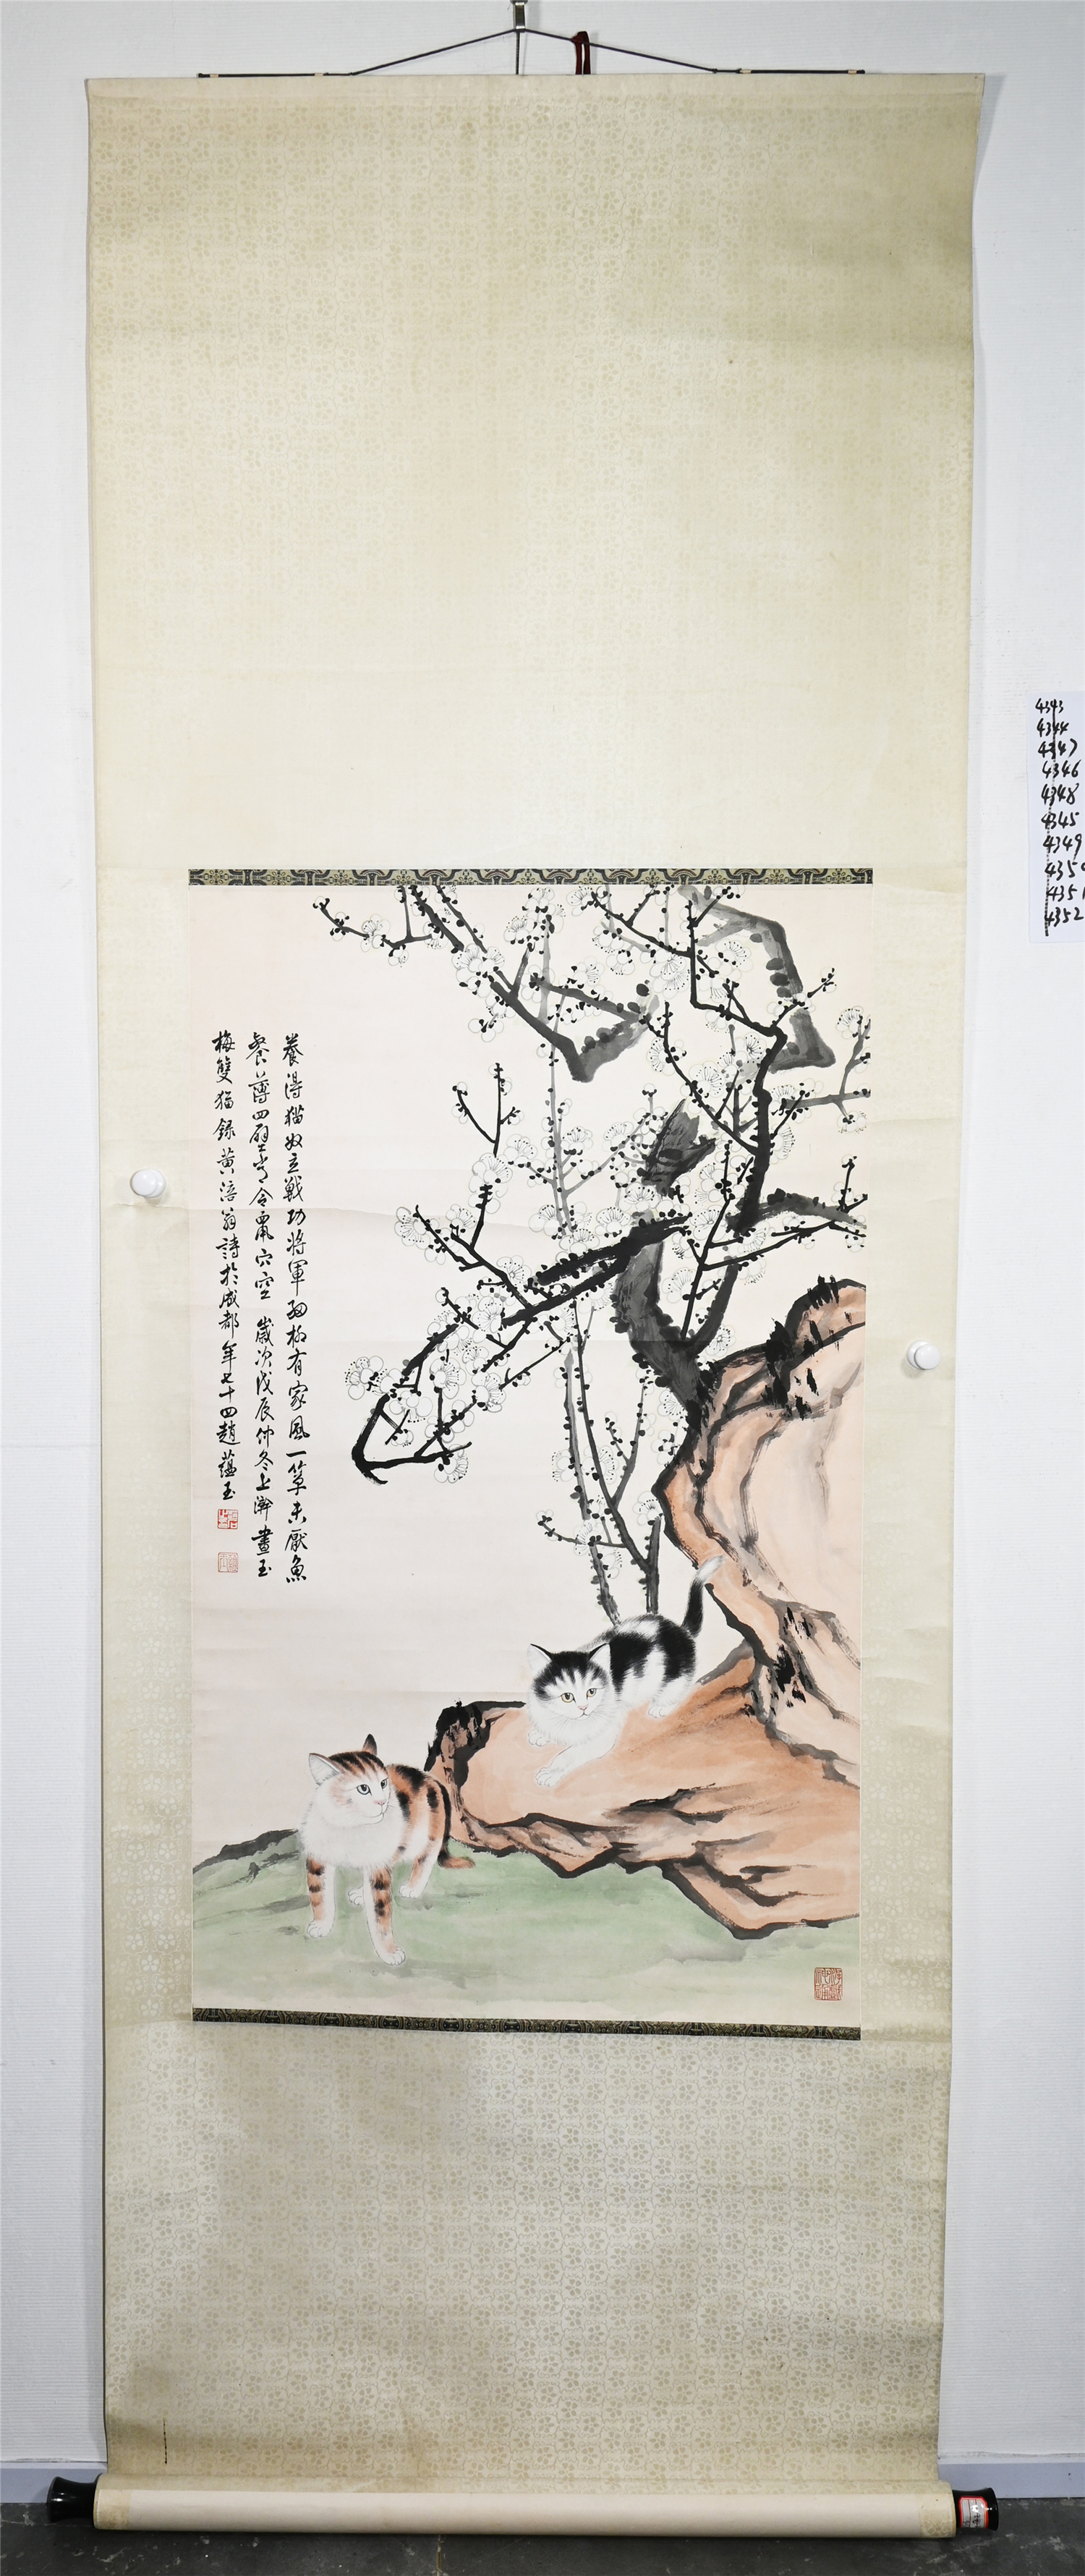 養得猫奴立戰功將軍細柳有家風一箪未厭魚
餐薄四壁常令鼠穴空 歲次戊辰仲冬上澣畫玉
梅雙猫錄黄涪翁詩於成都年七十四趙蘊玉
4343
4344
4347
4346
4348
4345
4349
4350
4351
4352